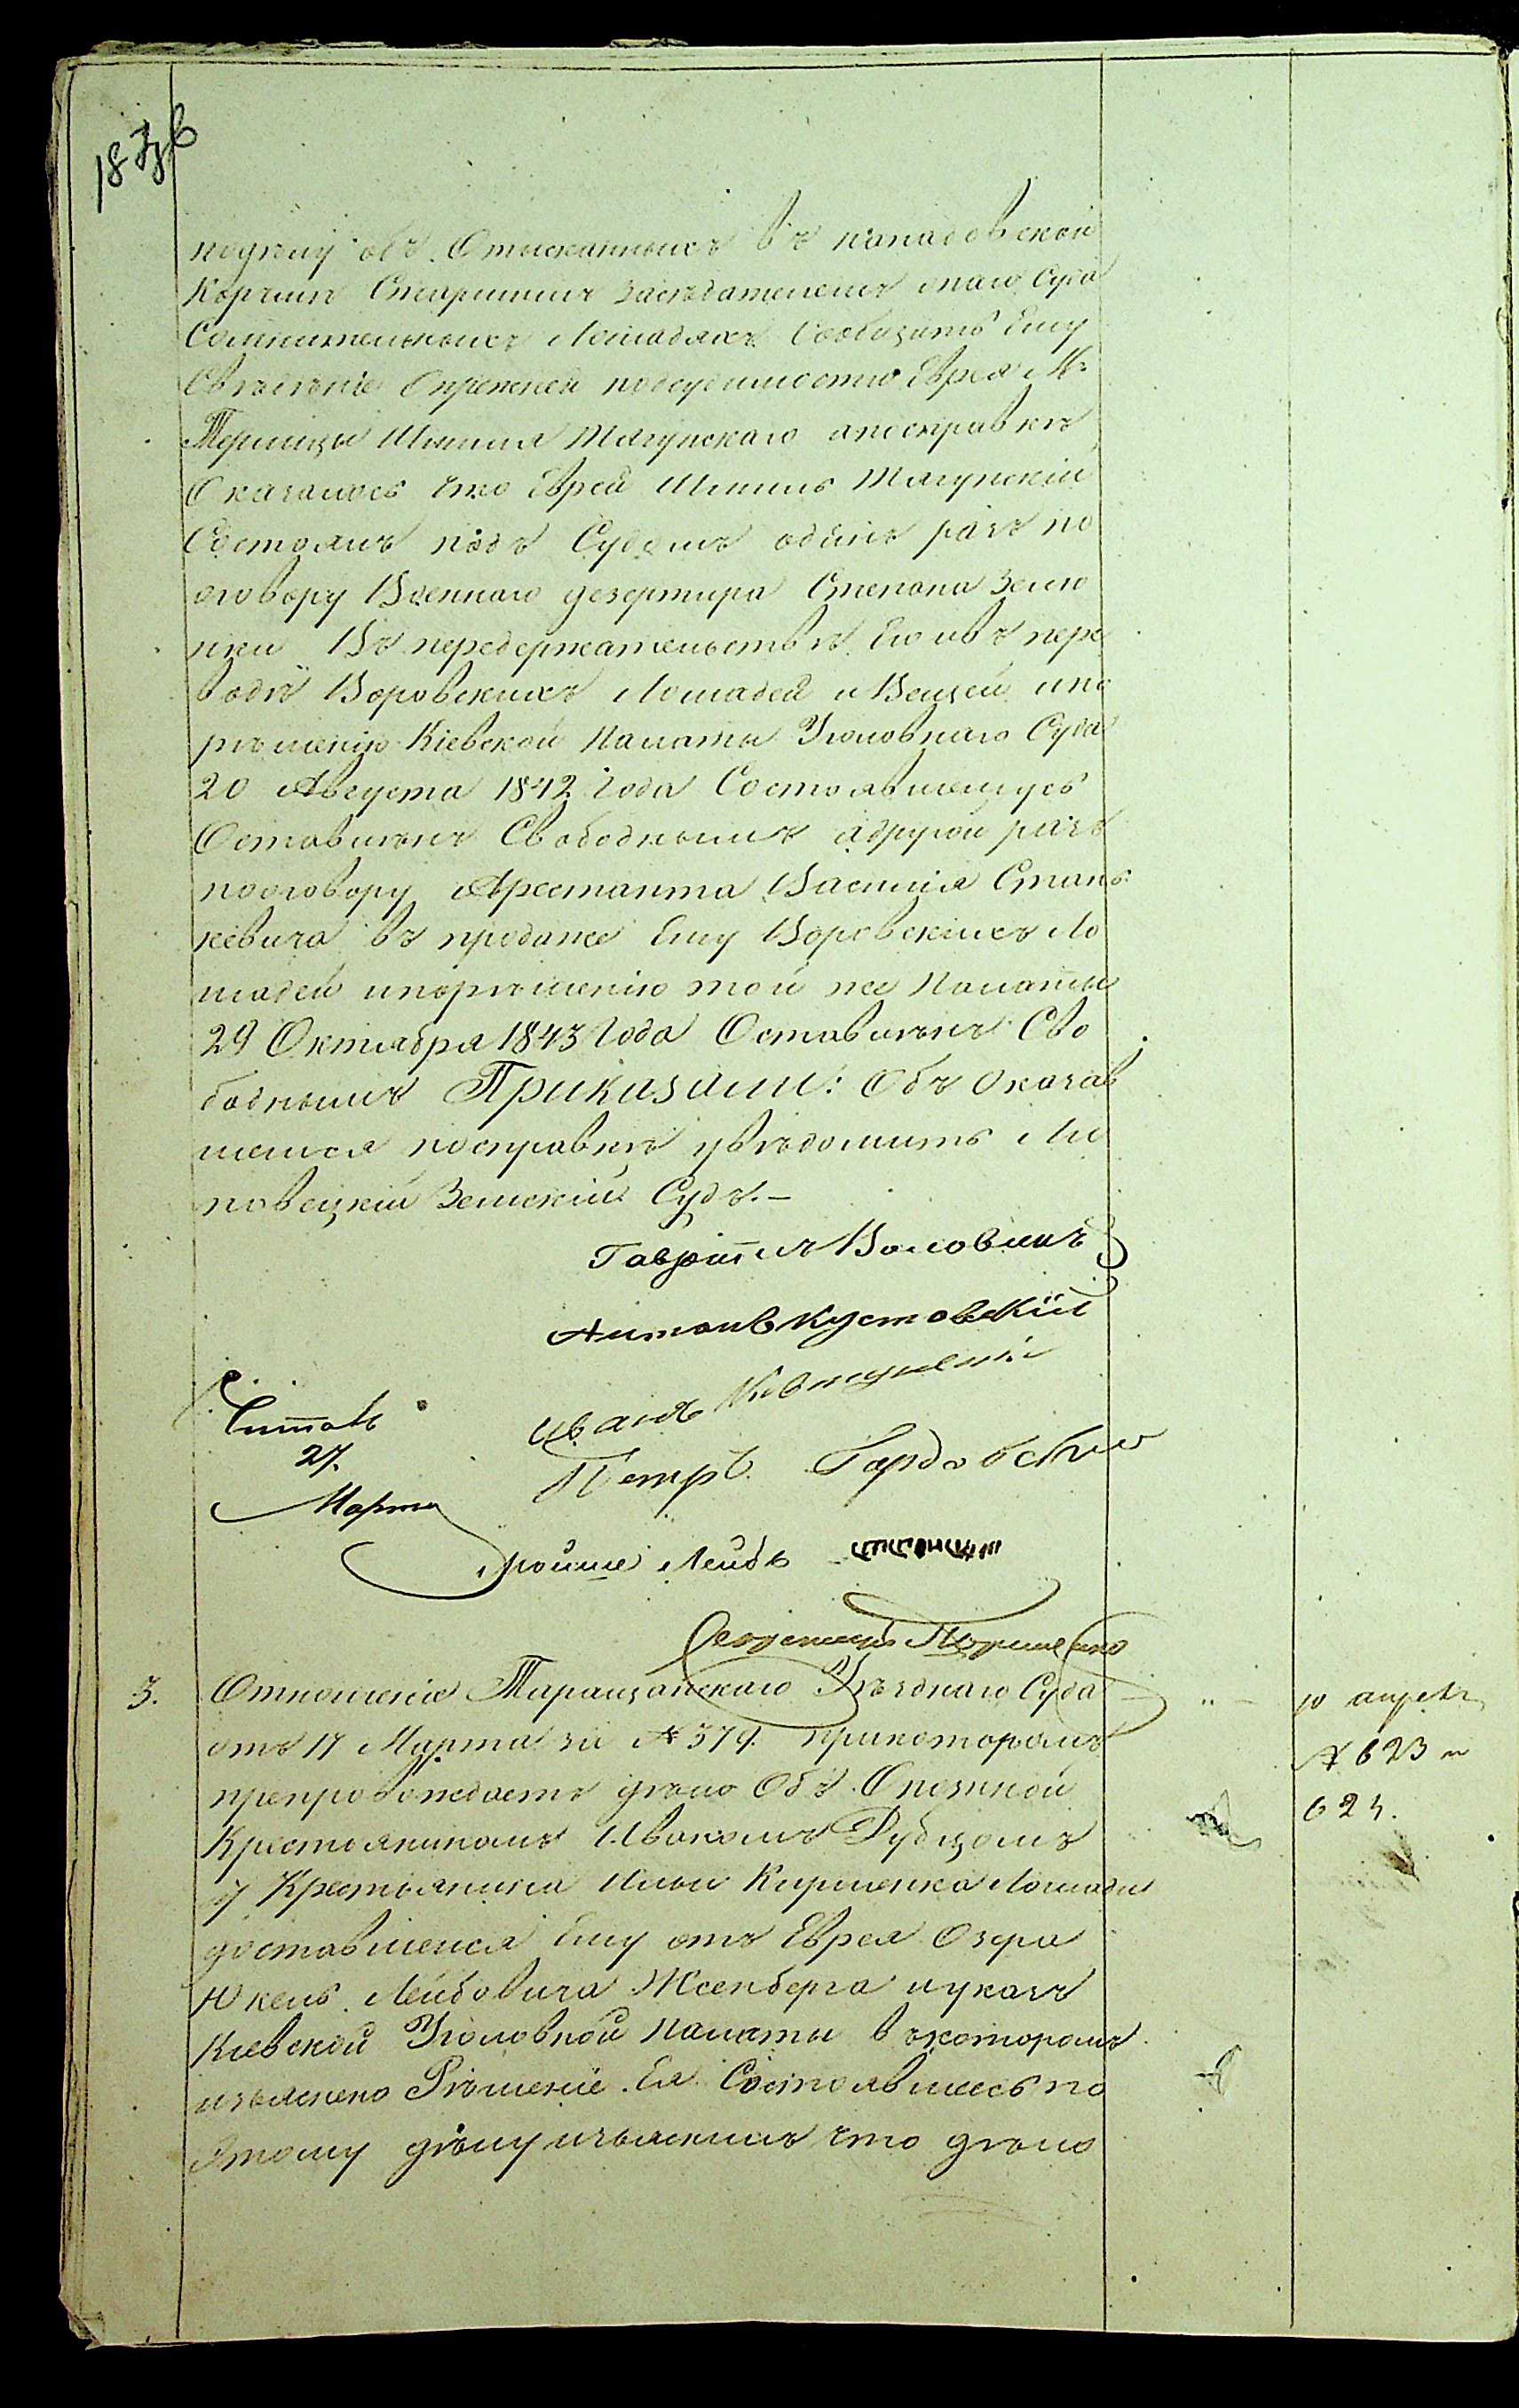 подѣлу объ Отысканныхъ въ канадовской
Корчмѣ Старшимъ засѣдателемъ онаго Суда
Сомнительныхъ Лошадяхъ Сообщить Ему
Свѣденіе Опрежней подсудимости Еврея М:
Терлицы Шмиля Тягунскаго апосправкѣ
Оказалось что Еврей Шмиль Тягунскій
Состоялъ подъ Судомъ одинъ разъ по
оговору Военнаго дезертира Степана
Въ передержательствѣ Его ивъ пере
водѣ Воровскихъ Лошадей и Вещей ипо
рѣшенію Кіевской Палаты Уголовнаго Суда
20 Августа 1842 Года Состоявшемусь
Оставленъ Свободнымъ адругой разъ
пооговору Арестанта Василія Стань
кевича въ продаже Ему Воровскихъ Ло
шадей ипорѣшенію той же Палаты
29 Октября 1843 Года Оставленъ Сво
боднымъ Приказали: Объ Оказав
шемся посправкѣ увѣдомить Ли
повецкій Земскій Судъ.—
Гавріилъ Воловикъ
Антонъ Кустовскій
Иванъ
Читалъ
27.
Марта
Петръ Гордовскій
Мойше Лейбъ
3. Отношеніе Таращанскаго Уѣзднаго Суда
отъ 17 Марта за № 379. прикоторомъ
препровождаетъ дѣло Объ Опознной
Крестьяниномъ Иваномъ Рубцомъ
у Крестьянина Ильи Кириленка Лошади
доставшейся Ему отъ Еврея Озера
Юкель Лейбовича Жсенберга иуказъ
Кіевской Уголовной Палаты вкоторомъ
изъяснено Рѣшеніе Ея Состоявшеесь по
Этому дѣлу изъяснилъ что дѣло
10 апреля
№ 623 и
624.